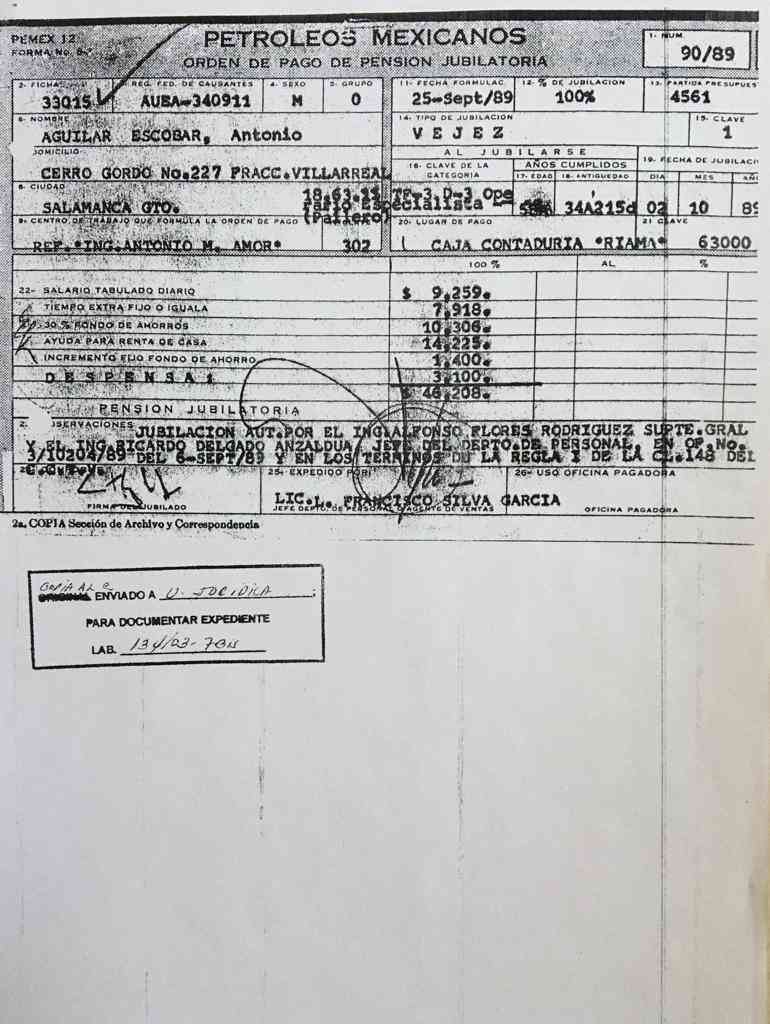 PEMEX 12
FORMA No.
PETROLEOS MEXICANOS
ORDEN DE PAGO DE PENSION JUBILATORIA
1- NUM.
90/89
2- FICHA
33015
REG. FED. DE CAUSANTES
AUEA-340911
4- SEXO
M
5- GRUPO
0
11- FECHA FORMULAC.
25-Sept/89
12- % DE JUBILACION
100%
13- PARTIDA PRESUPUES
4561
6- NOMBRE
AGUILAR ESCOBAR, Antonio
14- TIPO DE JUBILACION
V E J E Z
15- CLAVE
1
DOMICILIO
CERRO GORDO No.227 FRACC.VILLARREAL
AL JUBILARSE
16- CLAVE DE LA CATEGORIA
AÑOS CUMPLIDOS
17- EDAD
18- ANTIGUEDAD
34A215d
19- FECHA DE JUBILACI
DIA
MES
AÑ
02 10 89
8- CIUDAD
SALAMANCA GTO.
TF-3 D-3 Ope
Especialista
(Pailero)
9- CENTRO DE TRABAJO QUE FORMULA LA ORDEN DE PAGO
REF."ING.ANTONIO M. AMOR" 302
20- LUGAR DE PAGO
CAJA CONTADURIA "RIAMA"
21 CLAVE
63000
100 %
AL
%
22- SALARIO TABULADO DIARIO $ 9,259.
TIEMPO EXTRA FIJO O IGUALA 7,918.
30 % FONDO DE AHORROS 10,306.
AYUDA PARA RENTA DE CASA 14,225.
INCREMENTO FIJO FONDO DE AHORRO 1,400.
D E S P E N S A : 3,100.
PENSION JUBILATORIA $ 46,208.
OBSERVACIONES JUBILACION AUT.POR EL ING.ALFONSO FLORES RODRIGUEZ SUPTE.GRAL
Y EL ING.RICARDO DELGADO ANZALDUA JEFE DEL DEPTO.DE PERSONAL, EN OF.No.
3/10204/89 DEL 6-SEPT/89 Y EN LOS TERMINOS DU LA REGLA I DE LA CL.148 DEL
FIRMA DEL JUBILADO
25- EXPEDIDO POR:
LIC.L. FRANCISCO SILVA GARCIA
JEFE DEPTO. DE PERSONAL O AGENTE DE VENTAS
26- USO OFICINA PAGADORA
OFICINA PAGADORA
2a. COPIA Sección de Archivo y Correspondencia
COPIA AL C
ORIGINAL ENVIADO A U. JURIDICA
PARA DOCUMENTAR EXPEDIENTE
LAB.